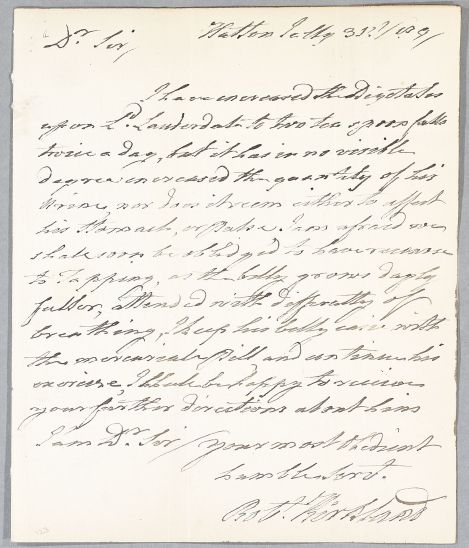 Hatton July 31st/89/
Dr. Sir/
I have increased the Digitalis
upon Ld. Lauderdale to two tea spoon fulls
twice a day, but it has in no visible
degree increased the quantity of his
Urine, nor does it seem either to affect
his Stomach, or Pulse. I am afraid we
shale soon be obledg'd to have recourse
to Tapping, as the belly grows dayly
fuller, attended with difficulty of
breathing, I keep his belly easie with
the mercureale Pill and continue his
exercise, I shale be happy to receive
your farther directions about him
I am Dr. Sir/ your most obedient
humble Servt.
Robt. Kirkland